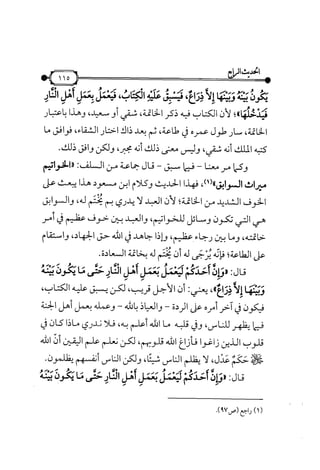 الحديث الرابع
١١٥
يَكُونُ بَيْنَهُ وَبَيْنَهَا إِلاَّ ذِرَاعٌ، فَيَسْبِقُ عَلَيْهِ الْكِتَابُ، فَيَعْمَلُ بِعَمَلِ أَهْلِ النَّارِ
فَيَدْخُلُهَا»؛ لأن الكتاب فيه ذكر الخاتمة، شقي أو سعيد، وهذا باعتبار
الخاتمة، سار طول عمره في طاعة، ثم بعد ذاك اختار الشقاء، فوافق ما
كتبه الملك أنه شقي، وليس معنى ذلك أنه مجبر، ولكن وافق ذلك.
وكما مر معنا - فيما سبق - قال جماعة من السلف: «الخواتيم
ميراث السوابق»(١)، فهذا الحديث وكلام ابن مسعود هذا يبعث على
الخوف الشديد من الخاتمة؛ لأن العبد لا يدري بم يُخْتم له، والسوابق
هي التي تكون وسائل للخواتيم، والعبد بين خوف عظيم في أمر
خاتمته، وما بين رجاء عظيم، وإذا جاهد في الله حق الجهاد، واستقام
على الطاعة؛ فإنه يُرْجَى له أن يُخْتَم له بخاتمة السعادة.
قال: «وَإِنَّ أَحَدَكُمْ لَيَعْمَلُ بِعَمَلِ أَهْلِ النَّارِ حَتَّى مَا يَكُونَ بَيْنَهُ
وَبَيْنَهَا إِلاَّ ذِرَاعٌ»، يعني: أن الأجل قريب، لكن يسبق عليه الكتاب،
فيكون في آخر أمره على الردة - والعياذ بالله - وعمله بعمل أهل الجنة
فيما يظهر للناس، وفي قلبه ما الله أعلم به، فلا ندري ماذا كان في
قلوب الذين زاغوا فأزاغ الله قلوبهم، لكن نعلم علم اليقين أنَّ الله
ﷻ حَكَمٌ عَدْل، لا يظلم الناس شيئًا، ولكن الناس أنفسهم يظلمون.
قال: «وَإِنَّ أَحَدَكُمْ لَيَعْمَلُ بِعَمَلِ أَهْلِ النَّارِ حَتَّى مَا يَكُونَ بَيْنَهُ
(١) راجع (ص٩٧).